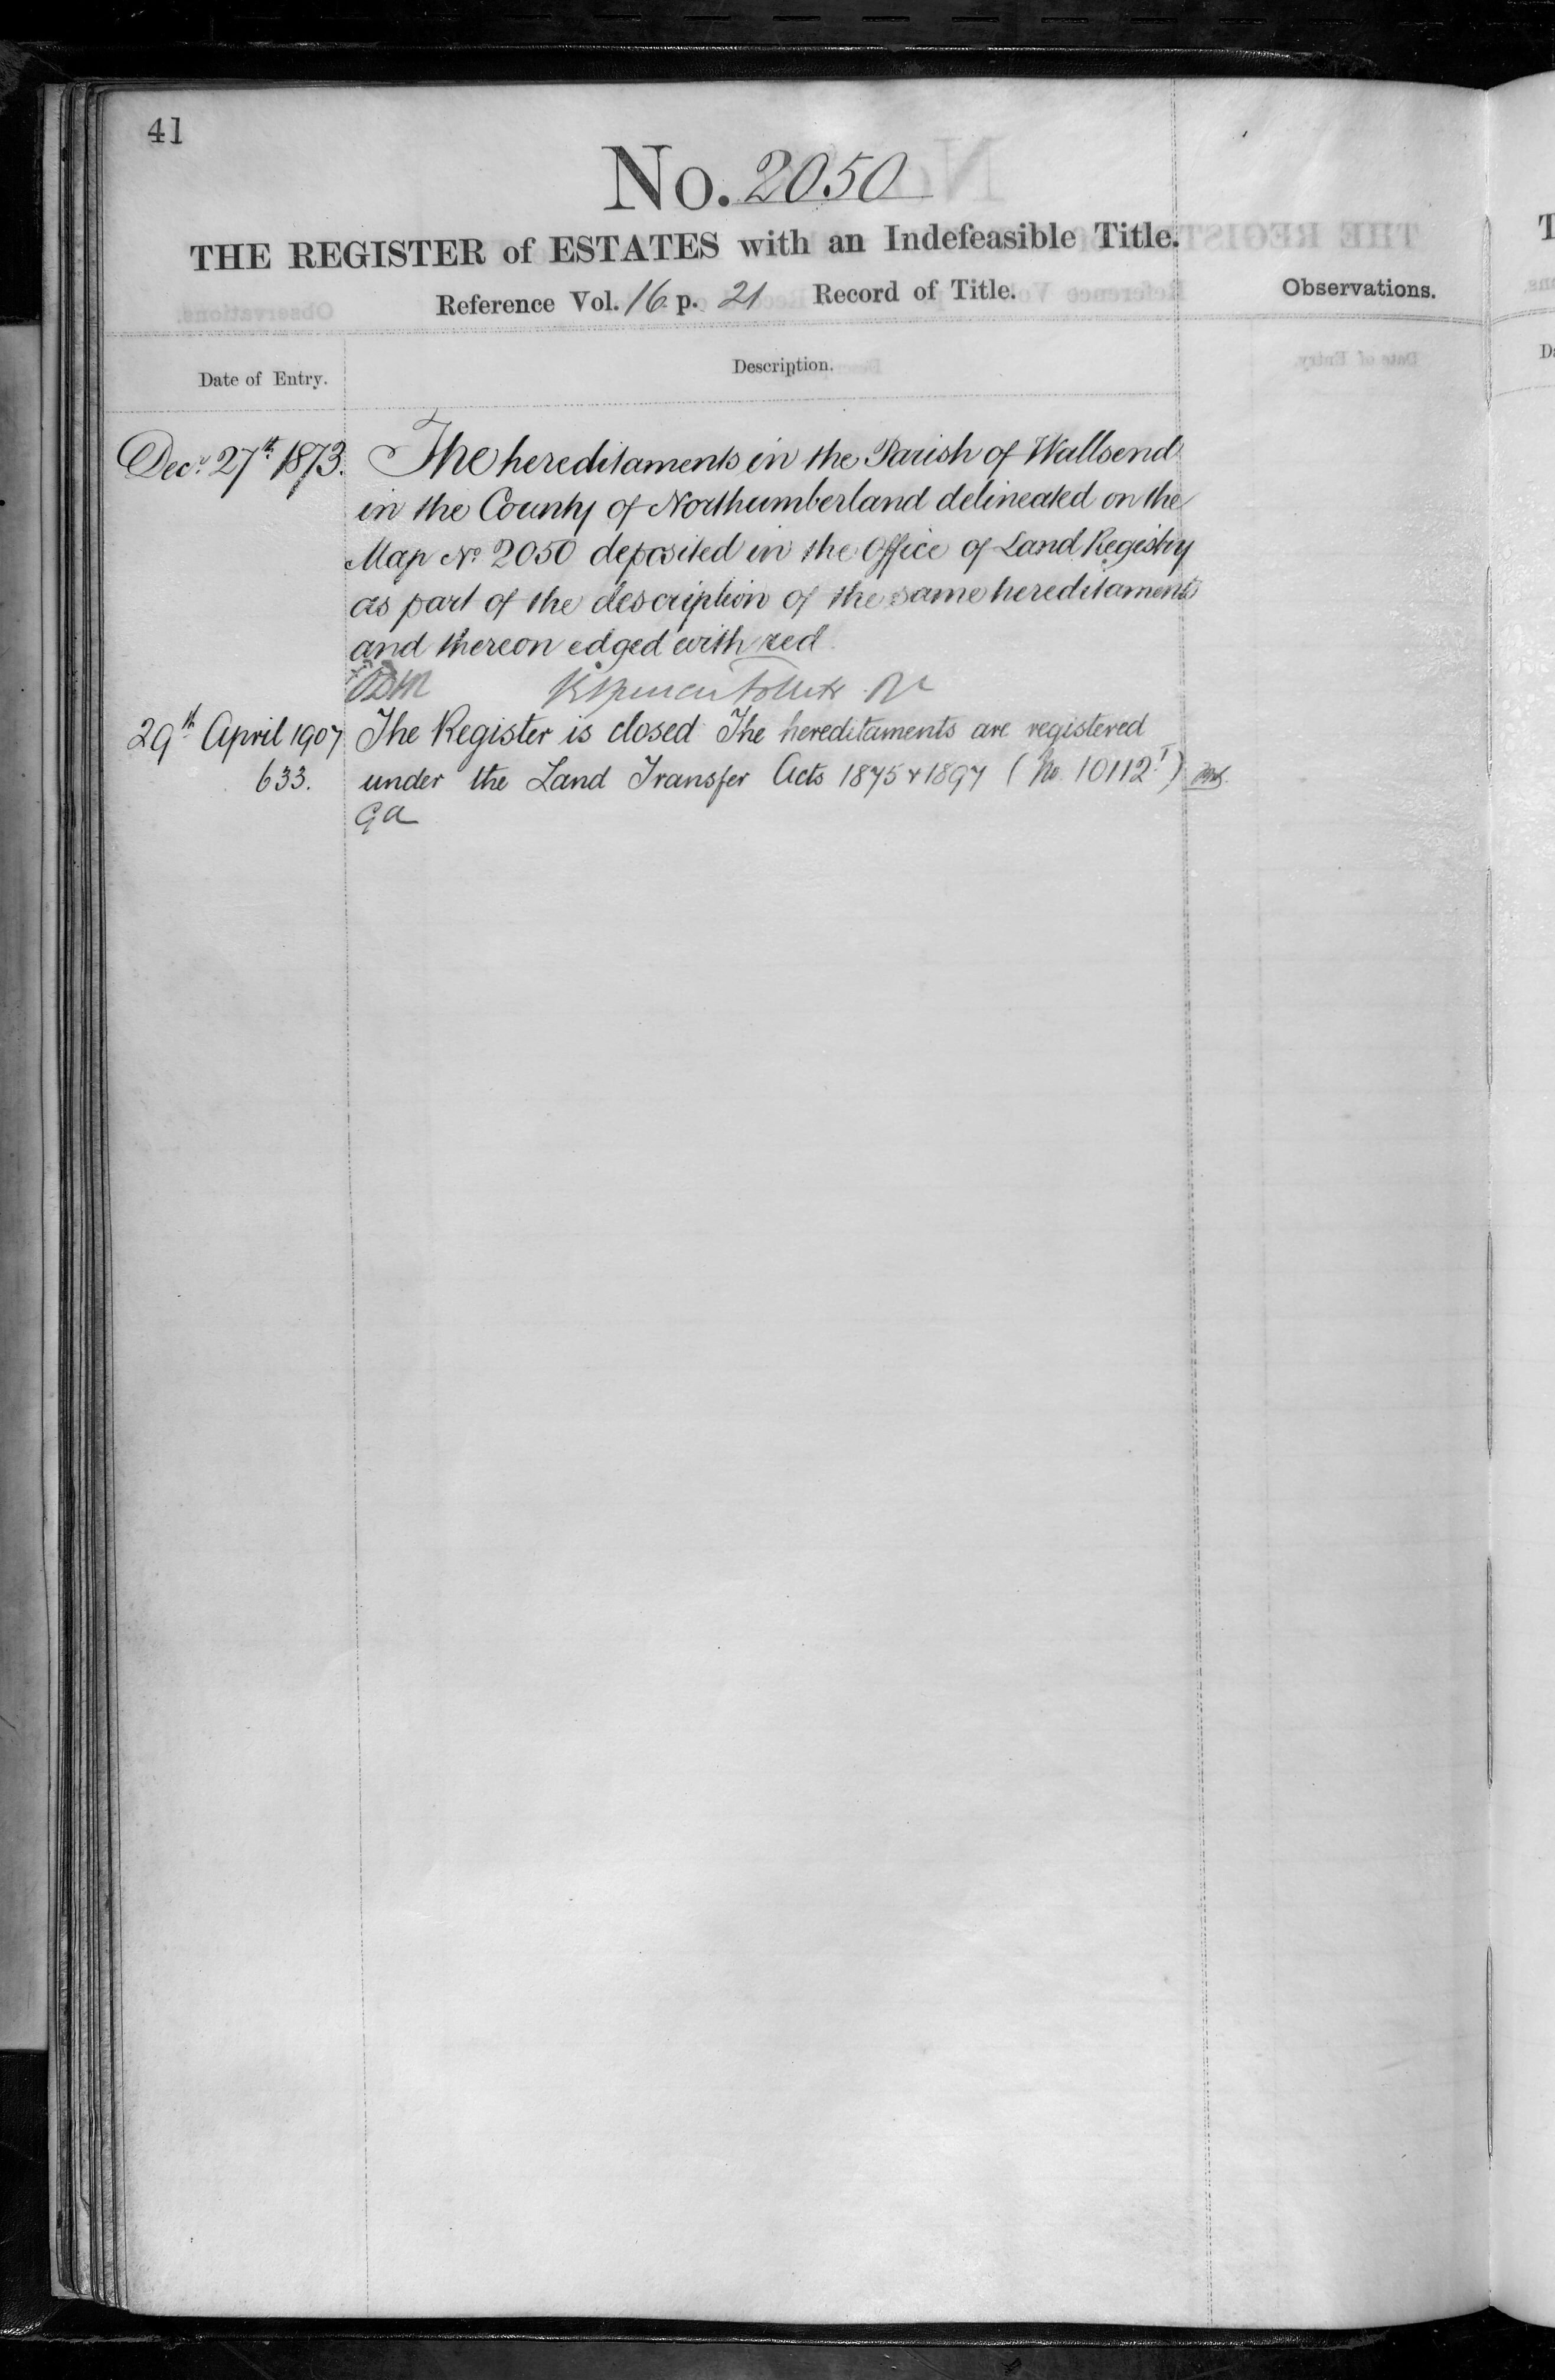 41
No. 2050
THE REGISTER of ESTATES with an Indefeasible Title.
Reference Vol. 16 p. 21 Record of Title.
Observations.
Date of Entry.
Description.
Decr. 27th 1873. The hereditaments in the Parish of Wallsend
in the County of Northumberland delineated on the
Map No 2050 deposited in the Office of Land Registry
as part of the description of the same hereditaments
and thereon edged with red
29th April 1907 The Register is closed The hereditaments are registered
633. under the Land Transfer Acts 1875 & 1897 (No. 10112)
ga